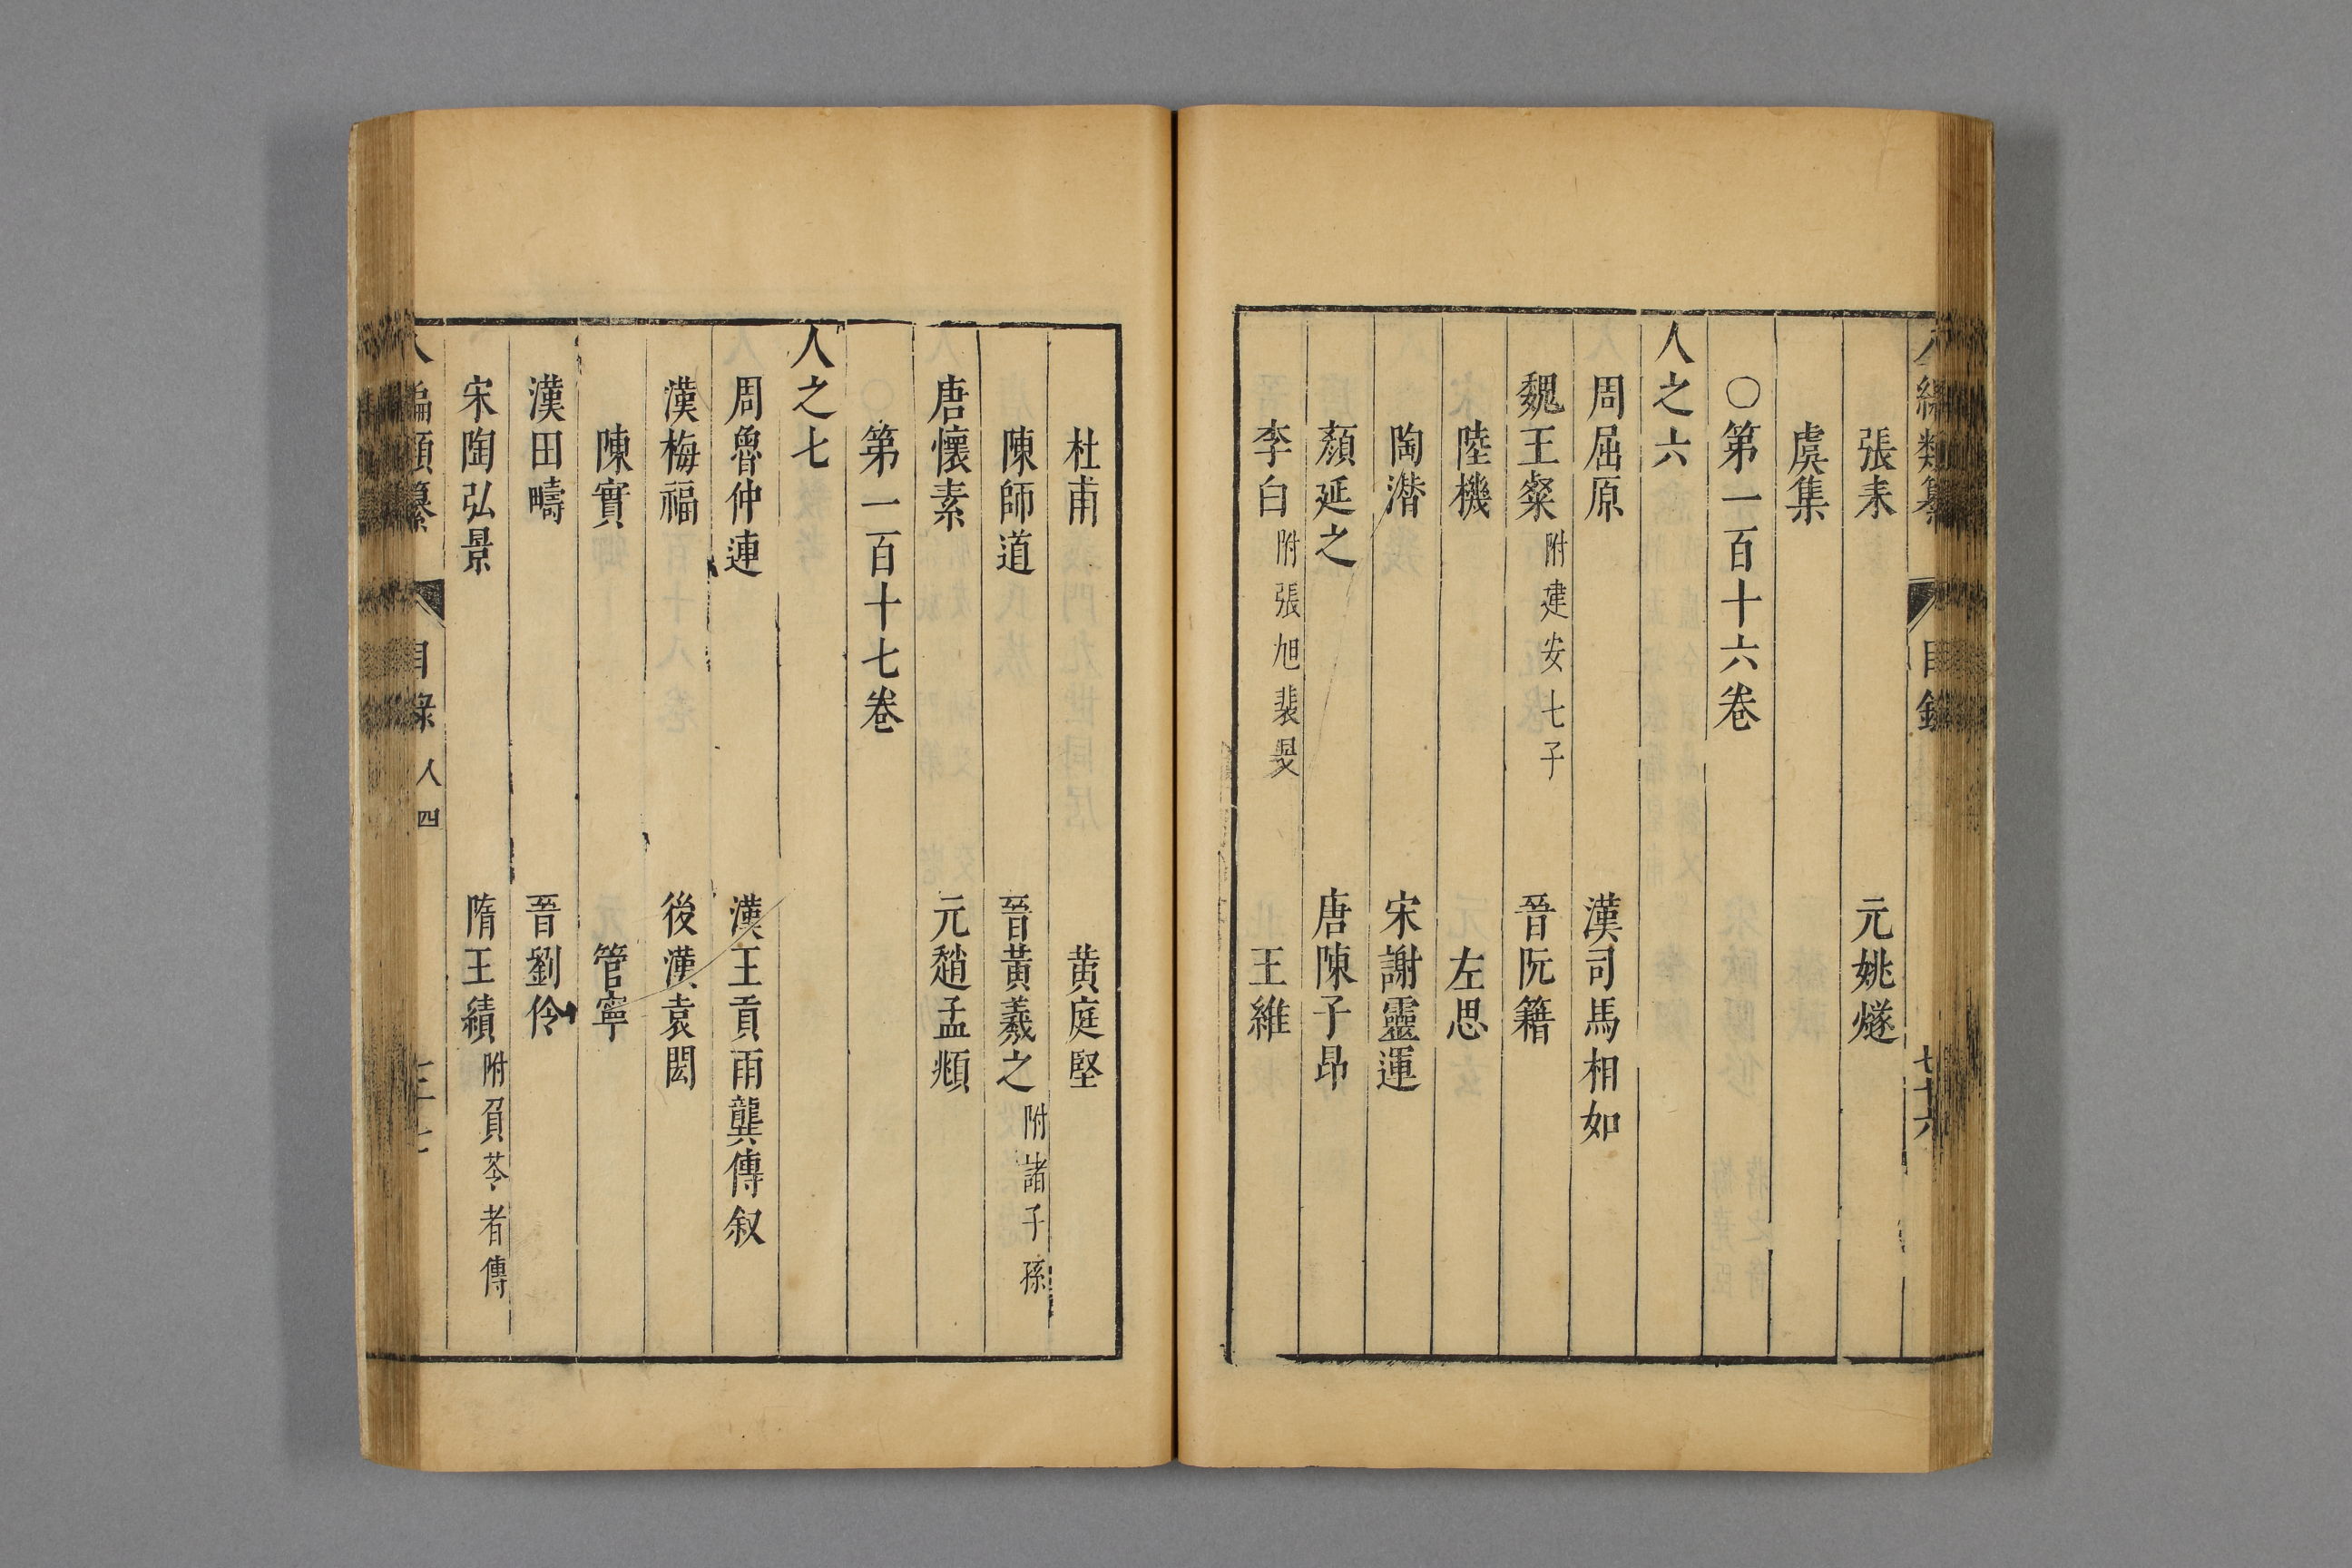 八編類纂 目錄 七十六
張耒 元姚燧
虞集
○第一百十六卷
人之六
周屈原 漢司馬相如
魏王粲附建安七子 晉阮籍
陸機 左思
陶潛 宋謝靈運
顏延之 唐陳子昂
李白附張旭裴旻 王維
杜甫 黃庭堅
陳師道 晉黃羲之附諸子孫
唐懷素 元趙孟頫
第一百十七卷
人之七
周魯仲連 漢王貢兩龔傳叙
漢梅福 後漢袁閎
陳寔 管寧
漢田疇 晉劉伶
宋陶弘景 隋王績附負苓者傳
八編類纂 目錄 人四